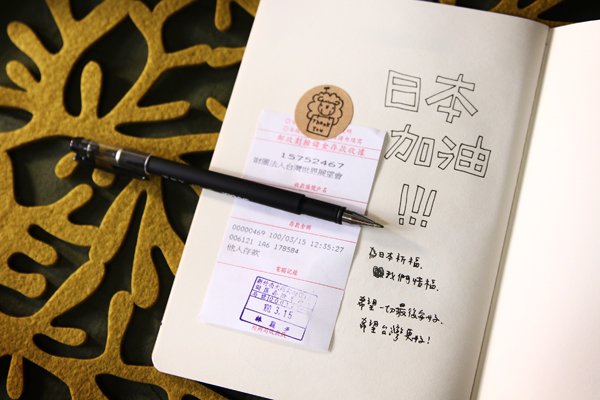 Thank
You
郵政劃撥儲金存款收據
15752467
財團法人台灣世界展望會
收款帳號戶名
存款金額
00000469 100/03/15 12:35:27
006121 1A6 178584
他人存款
電腦紀錄
100.3.15
日本
加油
!!!
為日本祈福.
我們惜福.
希望一切最後每好.
希望台灣更好!